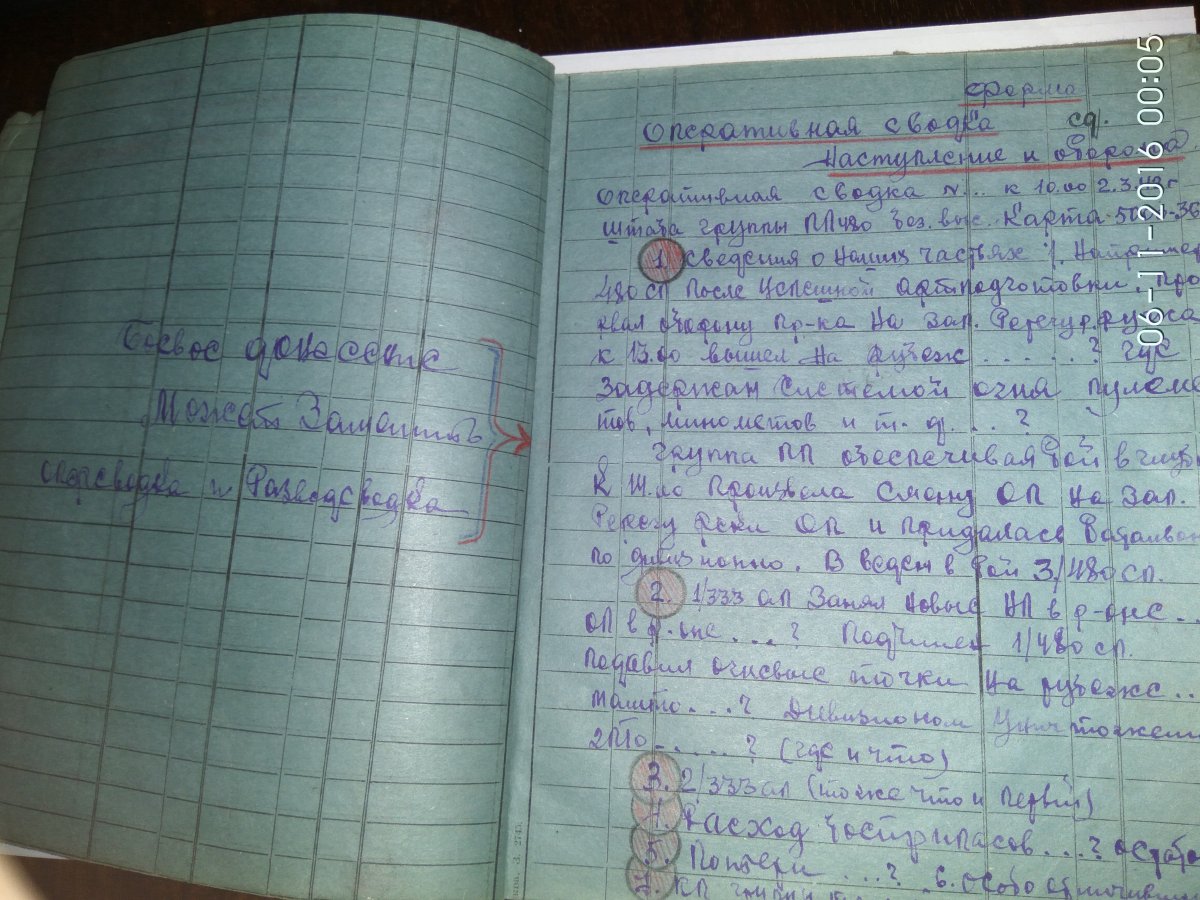 Боевое донесение
Может Заменить
оперсводка и Разведсводка
форма
Оперативная сводка сд.
Наступление и оборона
оперативная сводка №... к 10.00 2.3.
штаба группы ПП 480 Карта 50
1. Сведения о наших частях
480 сп после успешной артподготовки, про
рвал оборону пр-ка на зап.
к 13.00 вышел на рубеж . . . . . . ? где
задержан системой огня пулеме
тов, минометов и т. д. . . . ?
Группа ПП обеспечивая бой в
К 14.00 произвела смену ОП на зап.
берегу реки ОП и придалась
по дивизионно. Введен в бой 3/480 сп.
2. 1/333 ап Занял новые НП в р-оне ..
ОП в р-оне . . . . ? Подчинен 1/480 сп.
подавил огневые точки на рубеже ..
. . . . ? Дивизионом уничтожены
2ПТО . . . . . . ? (где и что)
3. 2/333 ап (тоже что и первый)
4. Расход боеприпасов . . . ?
5. Потери . . . ? 6. Особо отличивши
7. КП группы
06-11-2016 00:05